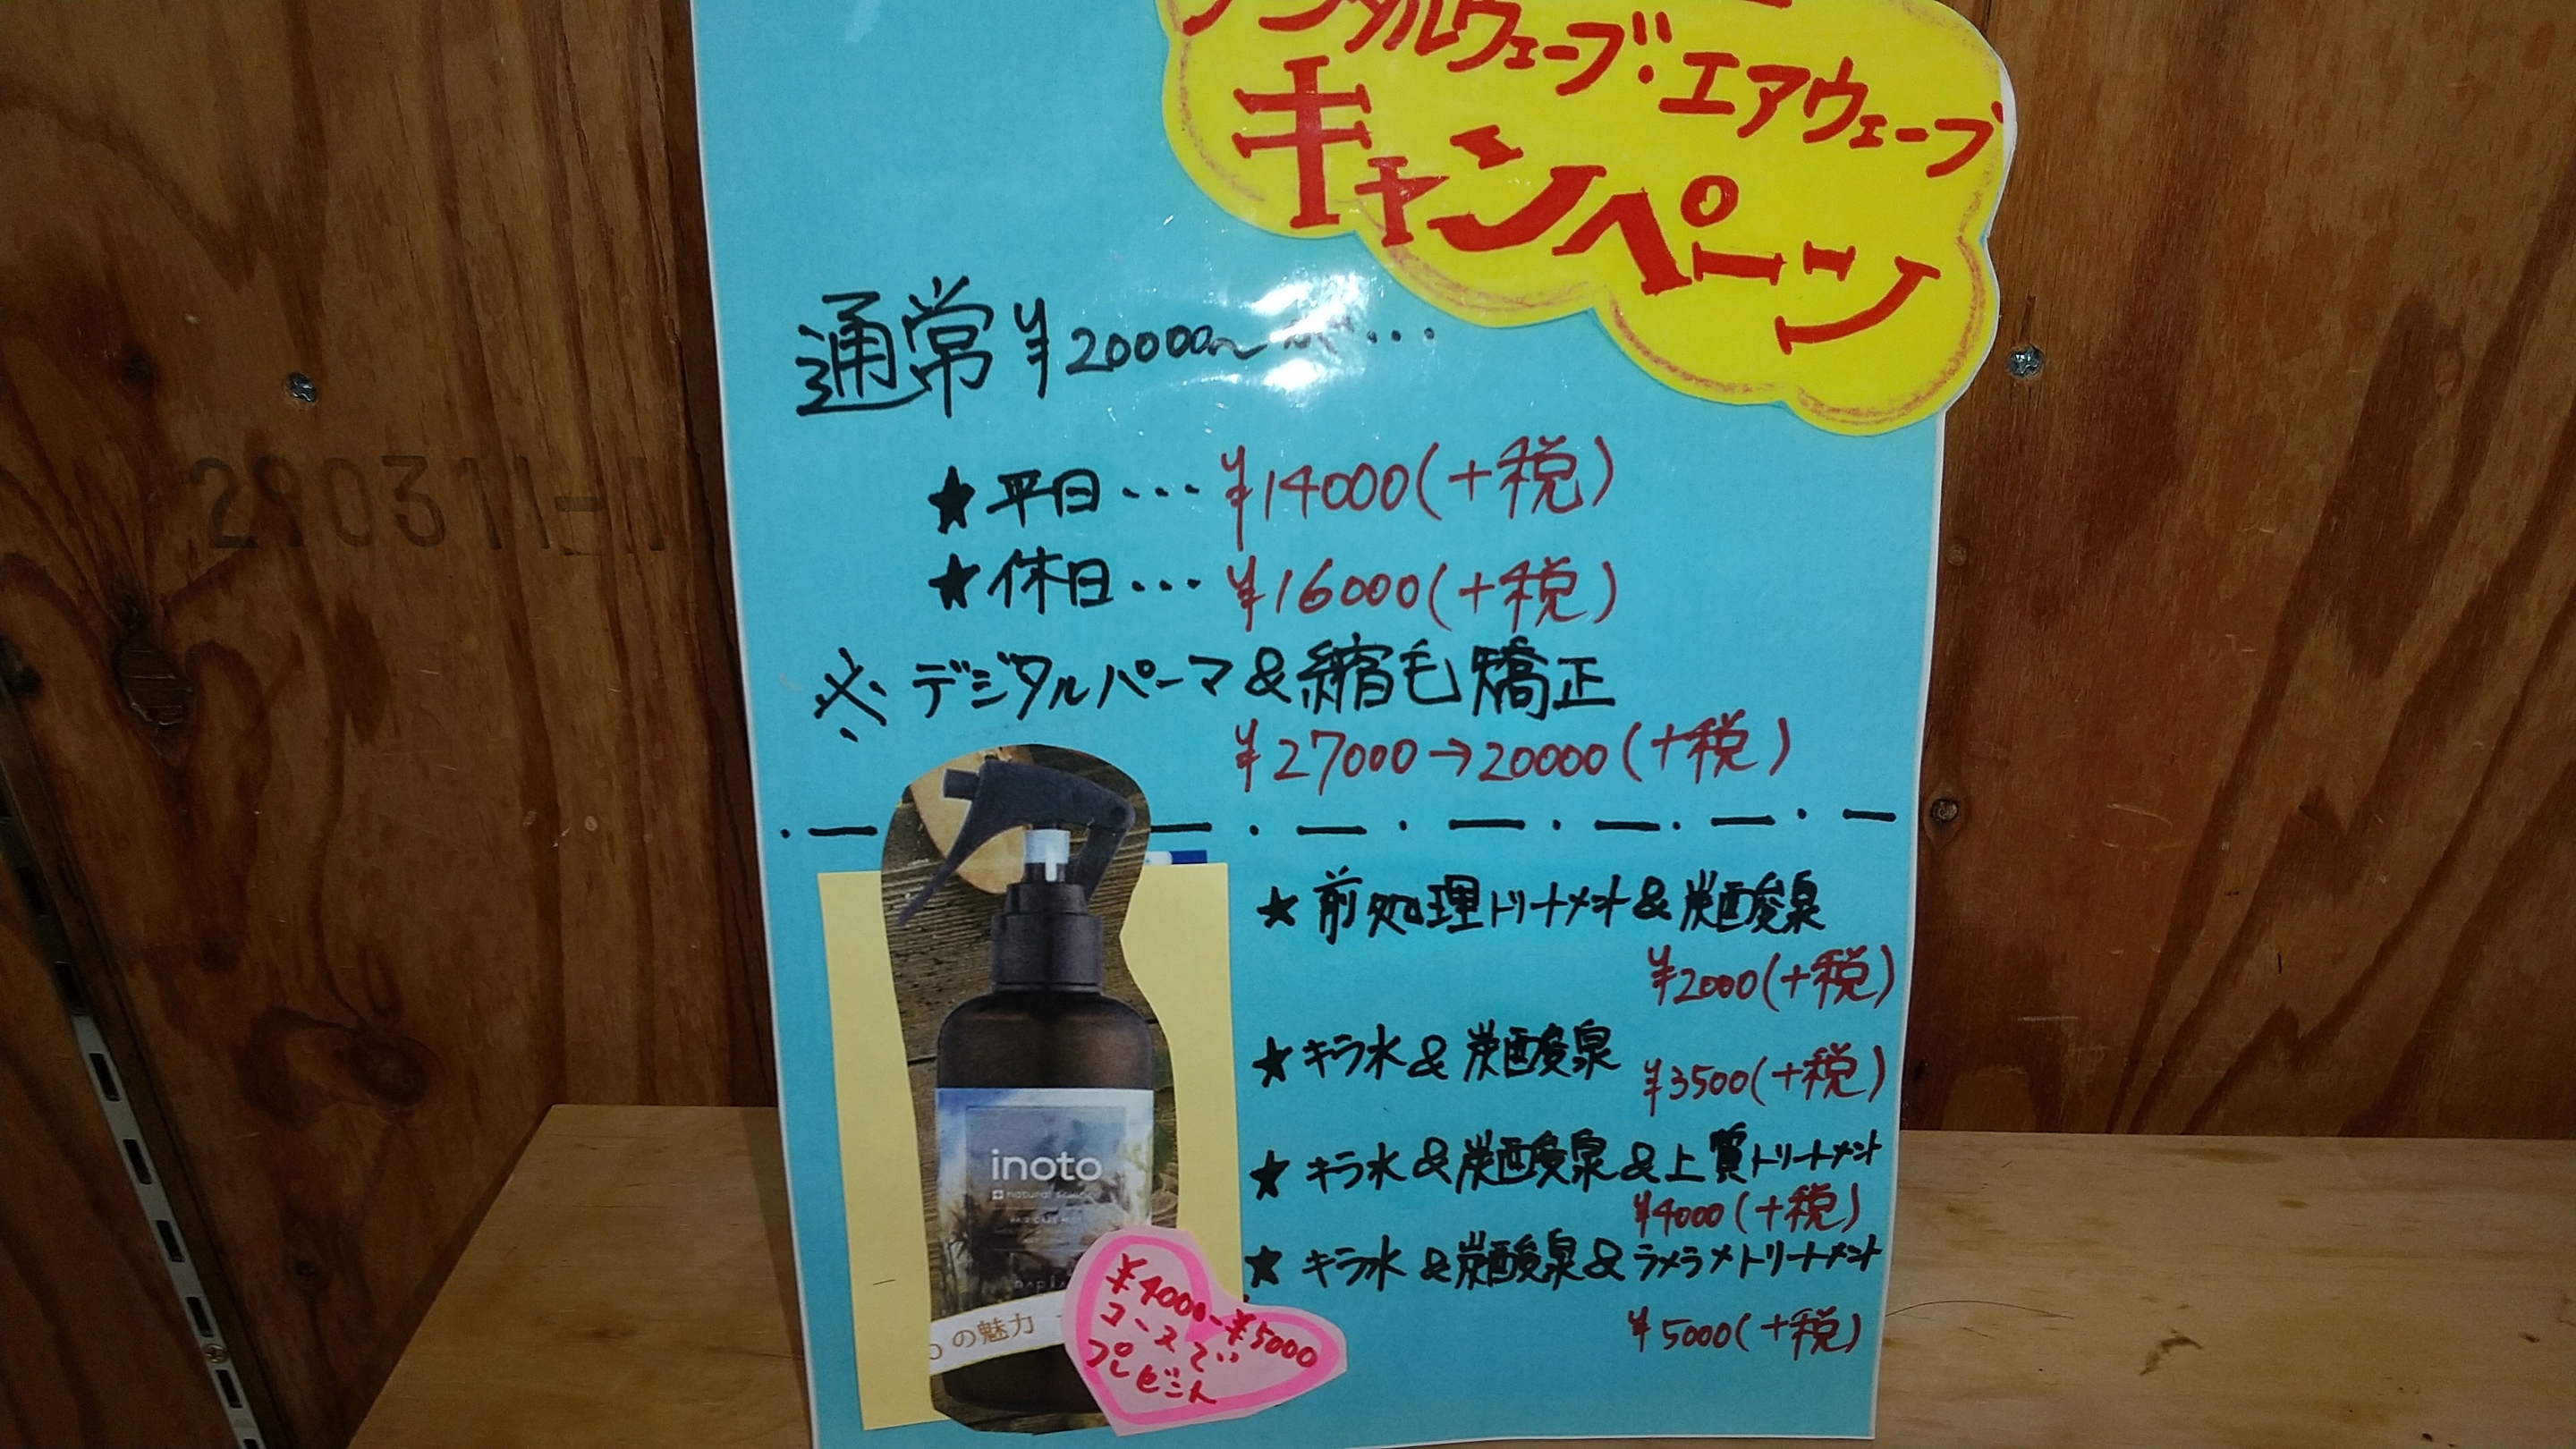 デジタルウェーブ・エアウェーブ
キャンペーン
通常¥20000〜が...
★平日...¥14000(+税)
★休日...¥16000(+税)
※デジタルパーマ&縮毛矯正
¥27000→20000(+税)
★前処理トリートメント&炭酸泉
¥2000(+税)
★キラ水&炭酸泉
¥3500(+税)
★キラ水&炭酸泉&上質トリートメント
¥4000(+税)
★キラ水&炭酸泉&ラメラメトリートメント
¥5000(+税)
inoto
natural science
HAIR CARE MIST
の魅力
¥4000-¥5000
コースで
プレゼント
290311-